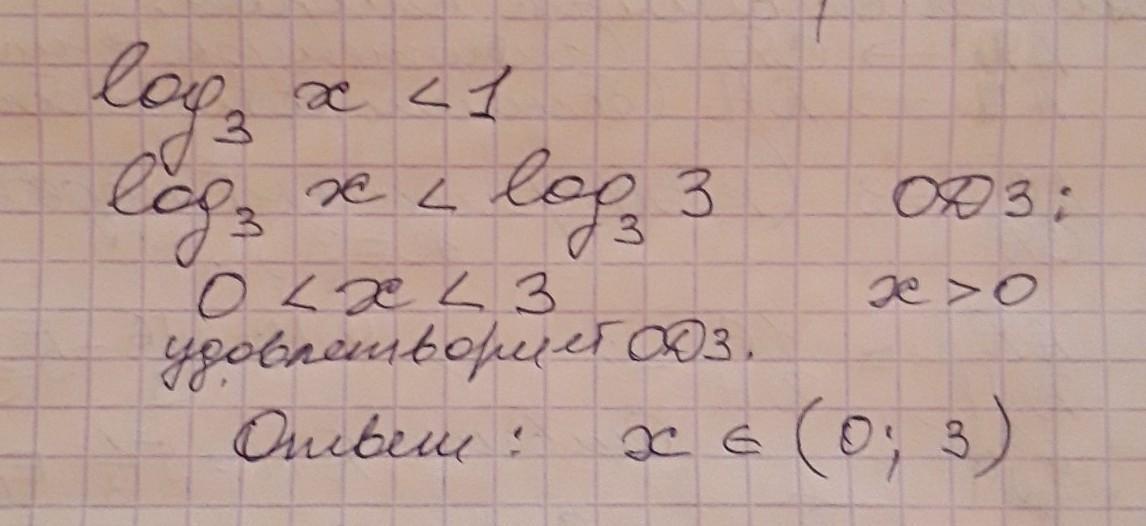 log₃ x < 1
log₃ x < log₃ 3 ОДЗ:
0 < x < 3 x > 0
удовлетворяет ОДЗ.
Ответ: x ∈ (0; 3)